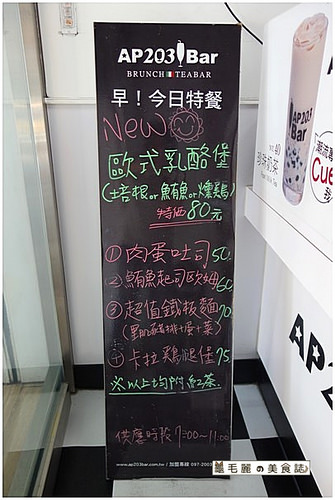 AP203 Bar
BRUNCH TEABAR
早！今日特餐
New
歐式乳酪堡
(培根or鮪魚or燻雞)
特価80元
①肉蛋吐司50
②鮪魚起司歐姆60
③超值鐵板麵70
④卡拉雞腿堡75
※以上均附紅茶.
供應時段 7:00~11:00
www.ap203.com.tw / 加盟專線 097-200
AP203
Bar
NO.40
奶茶
Cue
AP2
毛麗の美食誌